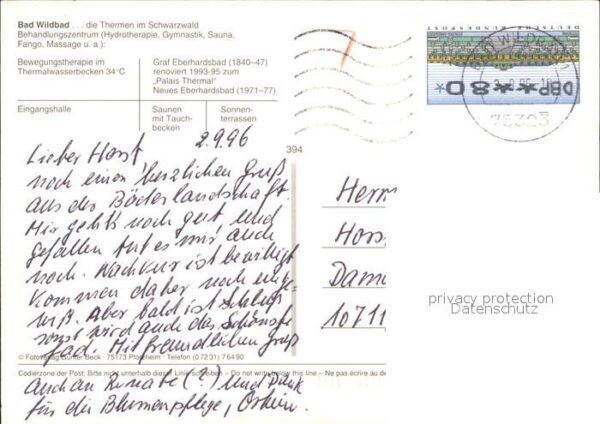 Bad Wildbad . . . die Thermen im Schwarzwald
Behandlungszentrum (Hydrotherapie, Gymnastik, Sauna,
Fango, Massage u. a.):
Bewegungstherapie im
Thermalwasserbecken 34°C
Graf Eberhardsbad (1840–47)
renoviert 1993-95 zum
„Palais Thermal"
Neues Eberhardsbad (1971–77)
Eingangshalle
Saunen
mit Tauch-
becken
Sonnen-
terrassen
394
DEUTSCHE BUNDESPOST
DBP***80
75323
2.9.96
Lieber Horst
noch einen herzlichen Gruß
aus der Bäderlandschaft.
Mir geht's noch gut und
gefallen tut es mir auch
noch. Nachkur ist bewilligt
kommen daher noch
Aber bald ist Schluß
sonst wird auch das Schönste
fad. Mit freundlichen Gruß
© Fotoverlag Günter Beck · 75173 Pforzheim · Telefon (0 72 31) 7 64 90
Codierzone der Post: Bitte nicht unterhalb des Striches schreiben – Do not write below this line – Ne pas écrire au de
Auch an Renate (?) und Dank
für die Blumenpflege,
Herrn
Hors
Dam
10711
privacy protection
Datenschutz